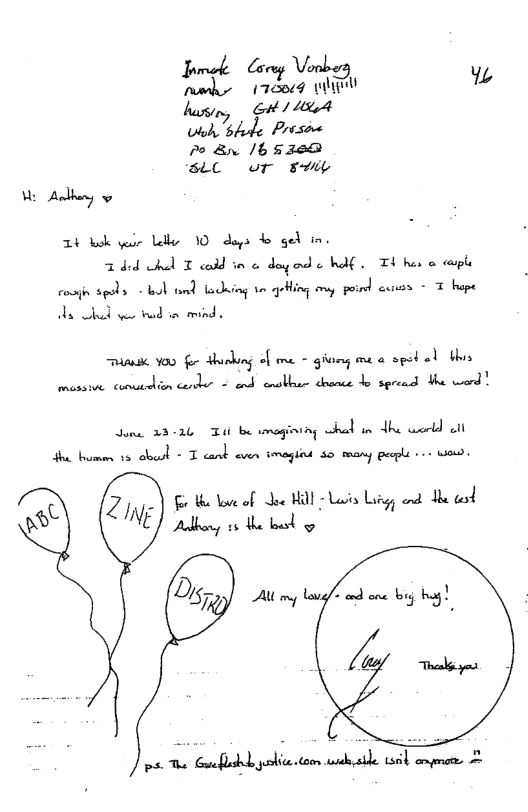 Inmate Corey Vonberg
46
number
housing GH1
Utah State Prison
PO Box 165300
SLC UT
Hi Anthony ♡
It took your letter 10 days to get in.
I did what I could in a day and a half. It has a couple
rough spots - but isnt lacking in getting my point across - I hope
its what you had in mind.
THANK YOU for thinking of me - giving me a spot at this
massive convention center - and another chance to spread the word!
June 23-26 Ill be imagining what in the world all
the humm is about - I cant even imagine so many people ... wow.
For the love of Joe Hill - Lewis Lingg and the rest
Anthony is the best ♡
ABC
ZINE
DISTRO
All my love - and one big hug!
Corey
Thank you
ps. The justice.com web side isnt anymore